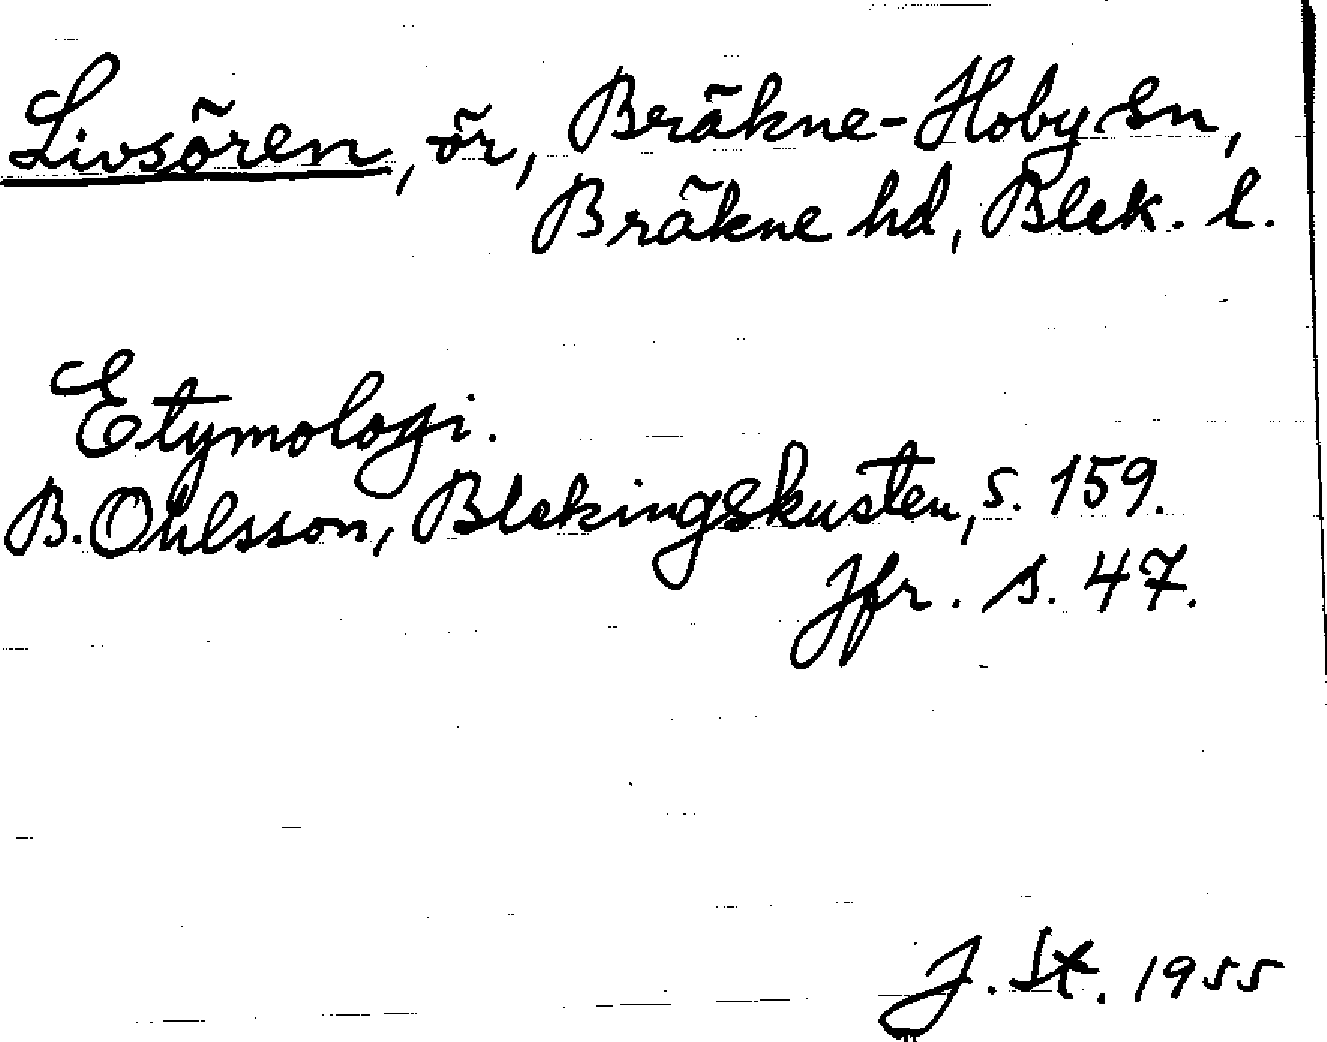 Livsören, ör, Bräkne-Hoby sn,
Bräkne hd, Blek. l.
Etymologi.
B. Ohlsson, Blekingskusten, s. 159.
Jfr. s. 47.
J. St. 1955